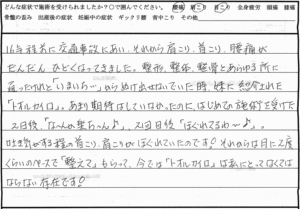 どんな症状で施術を受けられましたか?○で囲んでください。 腰痛 肩こり 首こり 全身疲労 頭痛 膝痛
骨盤の歪み 出産後の症状 妊娠中の症状 ギックリ腰 背中こり その他
16年程先に交通事故にあい、それから肩こり、首こり、腰痛が
だんだんひどくなってきました。整形、整体、整骨とあらゆる所に
「いまいち〜」から抜け出せないでいた時、妹に紹介された
「トオルカイロ」。あまり期待はしていなかったのに、はじめての施術を受けた
2日後、「な〜んか楽ち〜ん♪」、2回目後「ほぐれてるぅ〜♪」。
吐き気がする程の肩こり、首こりがほぐれていたのです!それからは月に2度
くらいのペースで「整えて」もらって、今では「トオルカイロ」は私にとってなくては
ならない存在です!